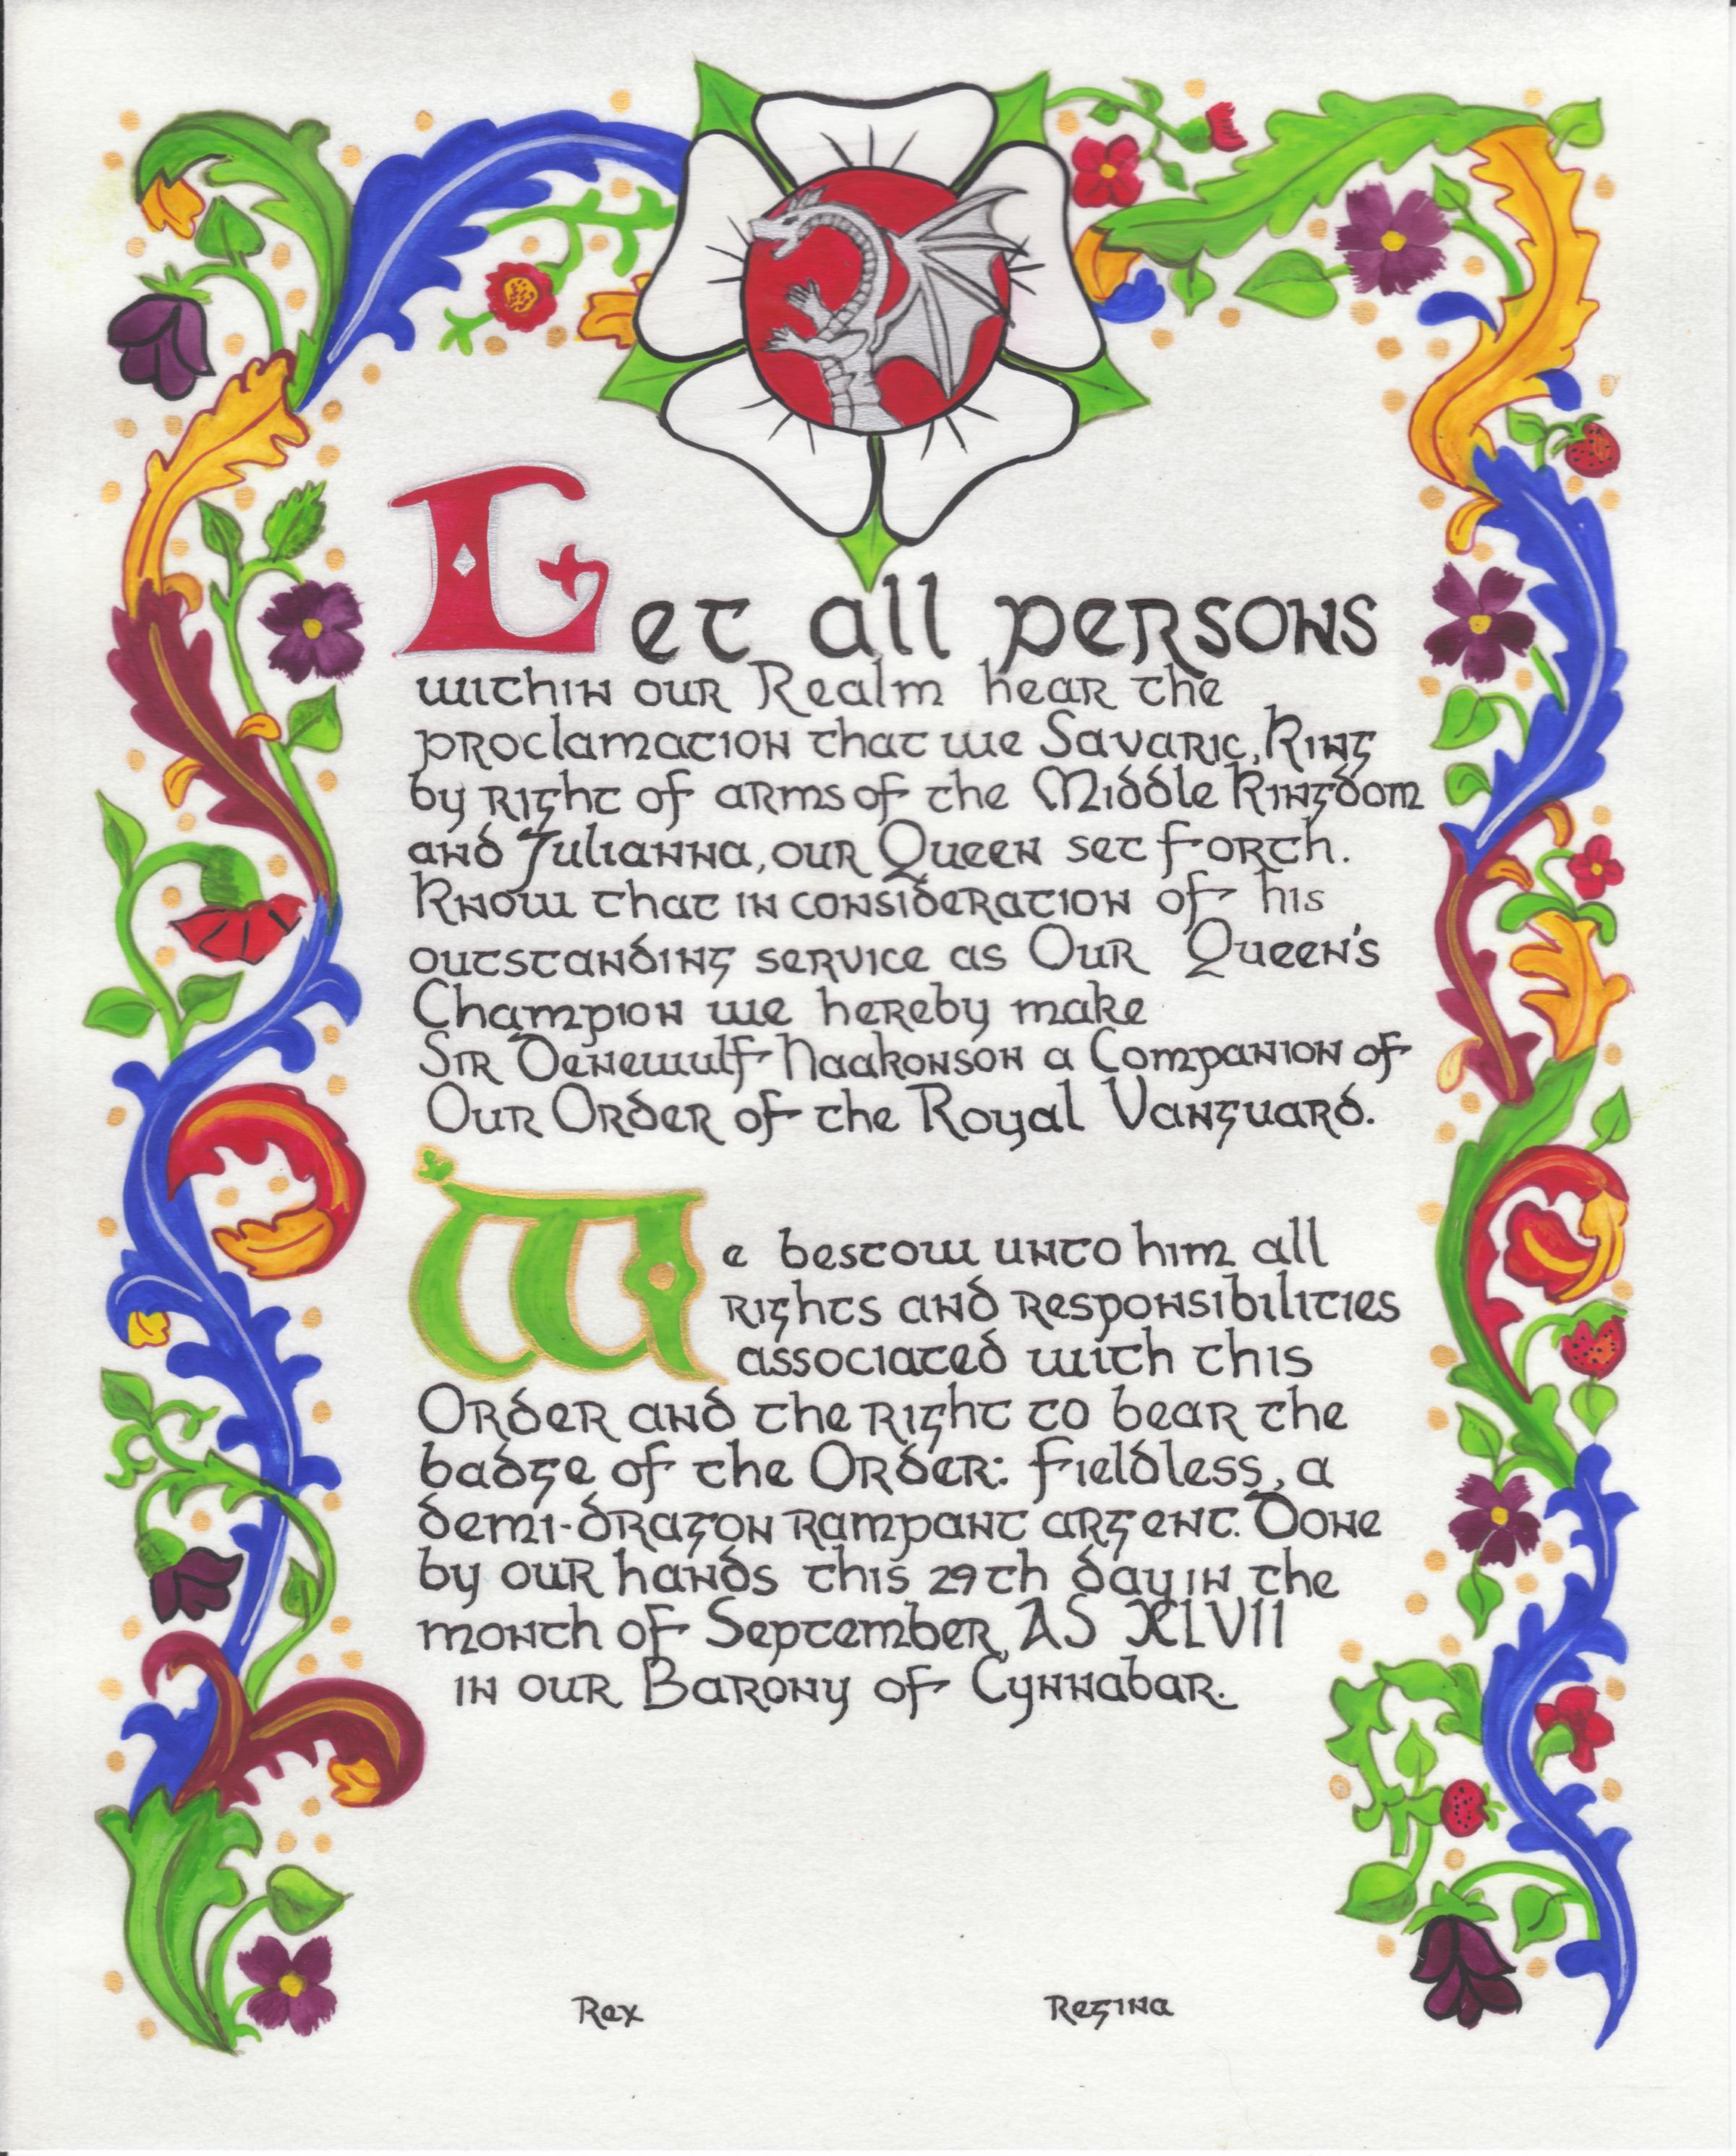 Let all persons
within our Realm hear the
proclamation that we Savaric, King
by right of arms of the Middle Kingdom
and Julianna, our Queen set forth.
Know that in consideration of his
outstanding service as Our Queen's
Champion we hereby make
Sir Denewulf Haakonson a Companion of
Our Order of the Royal Vanguard.
We bestow unto him all
rights and responsibilities
associated with this
Order and the right to bear the
badge of the Order: Fieldless, a
demi-dragon rampant argent. Done
by our hands this 29th day in the
month of September, AS XLVII
in our Barony of Cynnabar.
Rex Regina